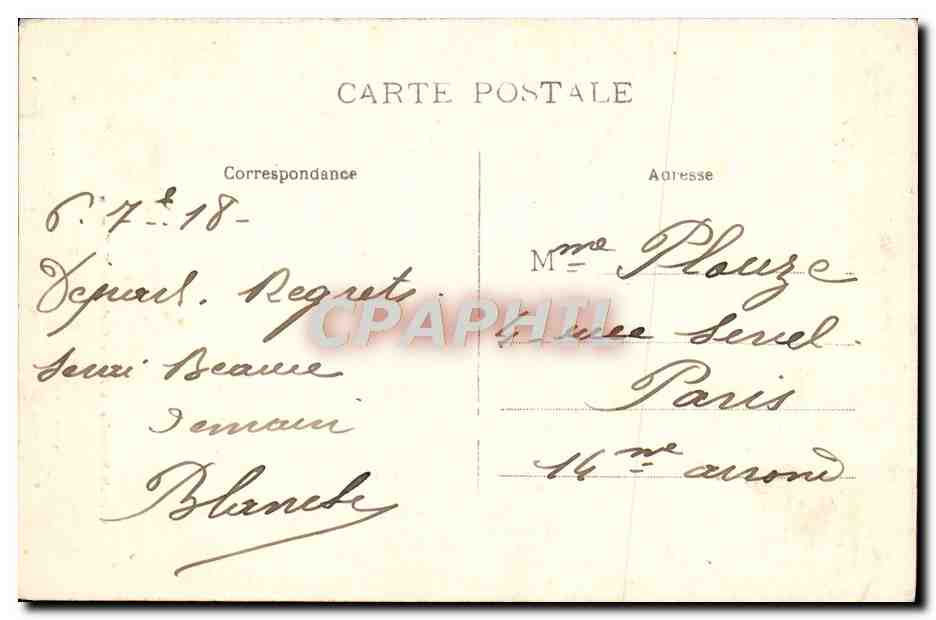 CARTE POSTALE
Correspondance
6. 7 18 -
Départ. Regrets.
serai Beaune
Demain
Blanche
Adresse
Mme Plouze
4 rue
Paris
14 me arrond
CPAPHIL